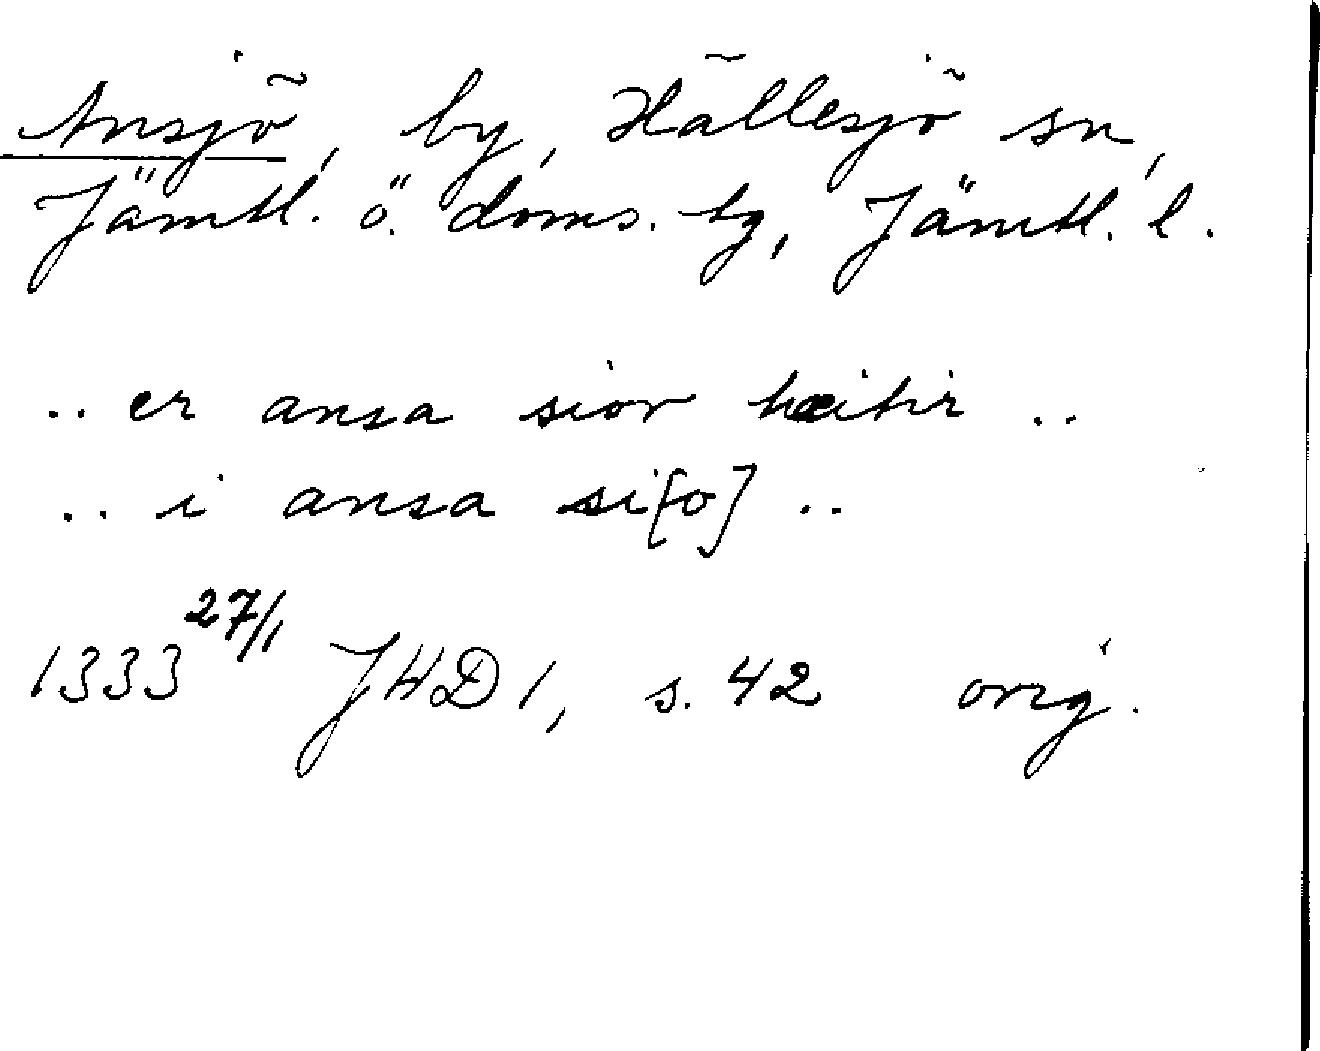 Ansjö, by, Hällesjö sn,
Jämtl. ö. doms. tg, Jämtl. l.
.. er ansa sior hæitir ..
.. i ansa si[o] ..
1333 27/1 JHD 1, s. 42 orig.